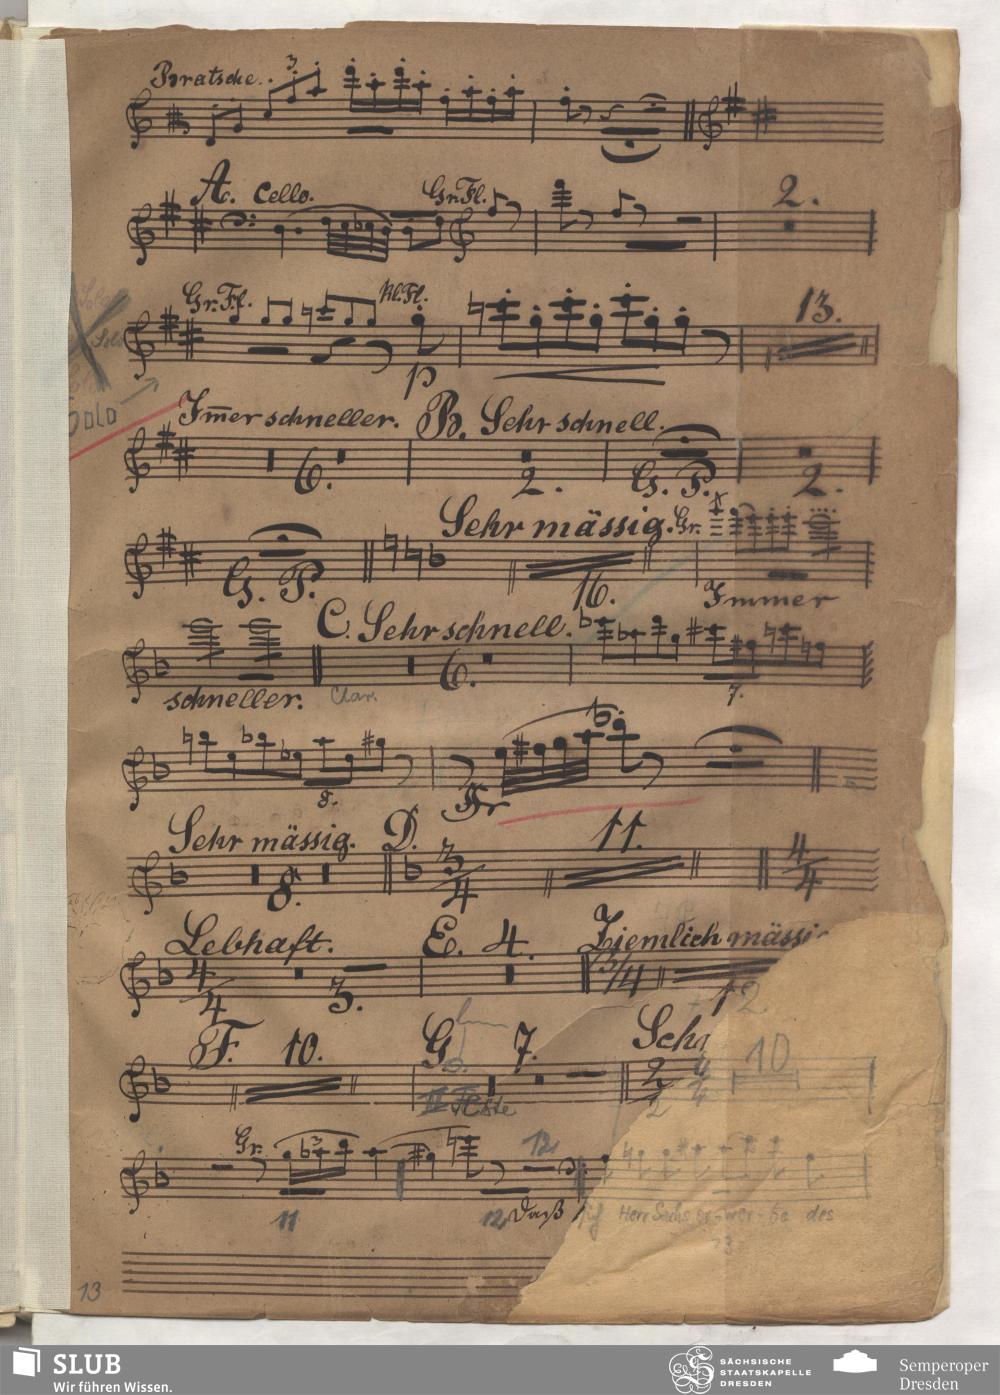 Bratsche. 3
A. Cello. Gr. Fl. 2.
Gr. Fl. Kl. Fl. 13.
Solo
p
Solo
Immer schneller. B. Sehr schnell.
6. 2. G. P. 2.
Sehr mässig. Gr.
G. P. 16. Immer
C. Sehr schnell.
6.
schneller. Clar. 7.
8.
Gr
Sehr mässig. D. 3/4 11. 4/4
8.
Lebhaft. E. 4. Ziemlich mässi
4/4 3. 3/4 12
F. 10. G. 7. Sehr 10
2/2 4/4
II Fl
Gr. 3 12
11 12 Daß Herr Sachs er-wer-be des
13
13
SLUB
Wir führen Wissen.
SÄCHSISCHE
STAATSKAPELLE
DRESDEN
Semperoper
Dresden